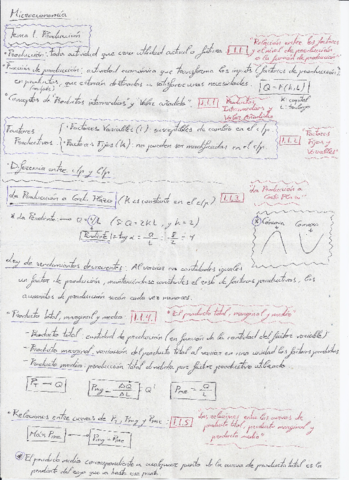 Microeconomía
Tema 1. Producción
* Producción: toda actividad que crea utilidad actual o futura 1.1.1 "Relación entre los factores
y el nivel de producción
o la función de producción"
* Función de producción: actividad económica que transforma los inputs (factores de producción)
en productos, que estarán destinados a satisfacer unas necesidades. Q = f(K,L)
(outputs) K: capital
L: trabajo
* Conceptos de "Productos intermedios" y "Valor añadido". 1.1.1 "Productos
Intermedios y
Valor Añadido"
Factores
Productivos
· Factores Variables (L): susceptibles de cambio en el c/p
· Factores Fijos (K): no pueden ser modificados en el c/p.
"Factores
Fijos y
Variables"
- Diferencia entre c/p y l/p
La Producción a Corto Plazo (K es constante en el c/p) 1.1.3 "La Producción a
Corto Plazo"
Cóncava Convexa
* Ley de rendimientos decrecientes: Al variar en cantidades iguales
un factor de producción, manteniéndose constantes el resto de factores productivos, los
aumentos de producción serán cada vez menores.
- Producto total, marginal y medio 1.1.4. "El producto total, marginal y medio"
- Producto total: cantidad de producción (en función de la cantidad del factor variable)
- Producto marginal: variación del producto total al variar en una unidad los factores productivos
- Producto medio: producción total dividida por factor productivo utilizado
PT → Q
Pmg = ΔQ/ΔL = Q'
Pme = Q/L
* Relaciones entre curvas de PT, Pmg y Pme 1.1.5 "Las relaciones entre las curvas de
producto total, producto marginal y
producto medio"
Máx Pme → Pmg = Pme
* El producto medio correspondiente a cualquier punto de la curva de producto total es la